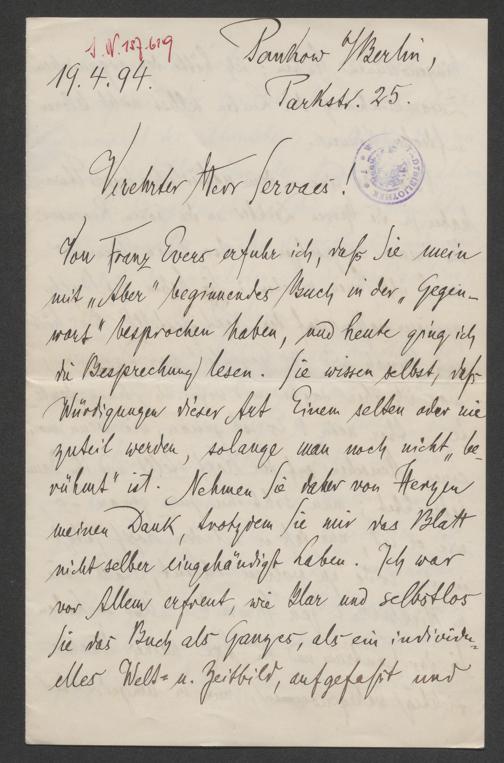 J.N. 187.619
Pankow b/Berlin,
19.4.94.
Parkstr. 25.
Verehrter Herr Servaes!
Von Franz Evers erfuhr ich, daß Sie mein
mit „Aber" beginnendes Buch in der „Gegen-
wart" besprochen haben, und heute ging ich
die Besprechung lesen. Sie wissen selbst, daß
Würdigungen dieser Art Einem selten oder nie
zuteil werden, solange man noch nicht „be-
rühmt" ist. Nehmen Sie daher von Herzen
meinen Dank, trotzdem Sie mir das Blatt
nicht selber eingehändigt haben. Ich war
vor Allem erfreut, wie klar und selbstlos
Sie das Buch als Ganzes, als ein individu-
elles Welt- u. Zeitbild, aufgefaßt und